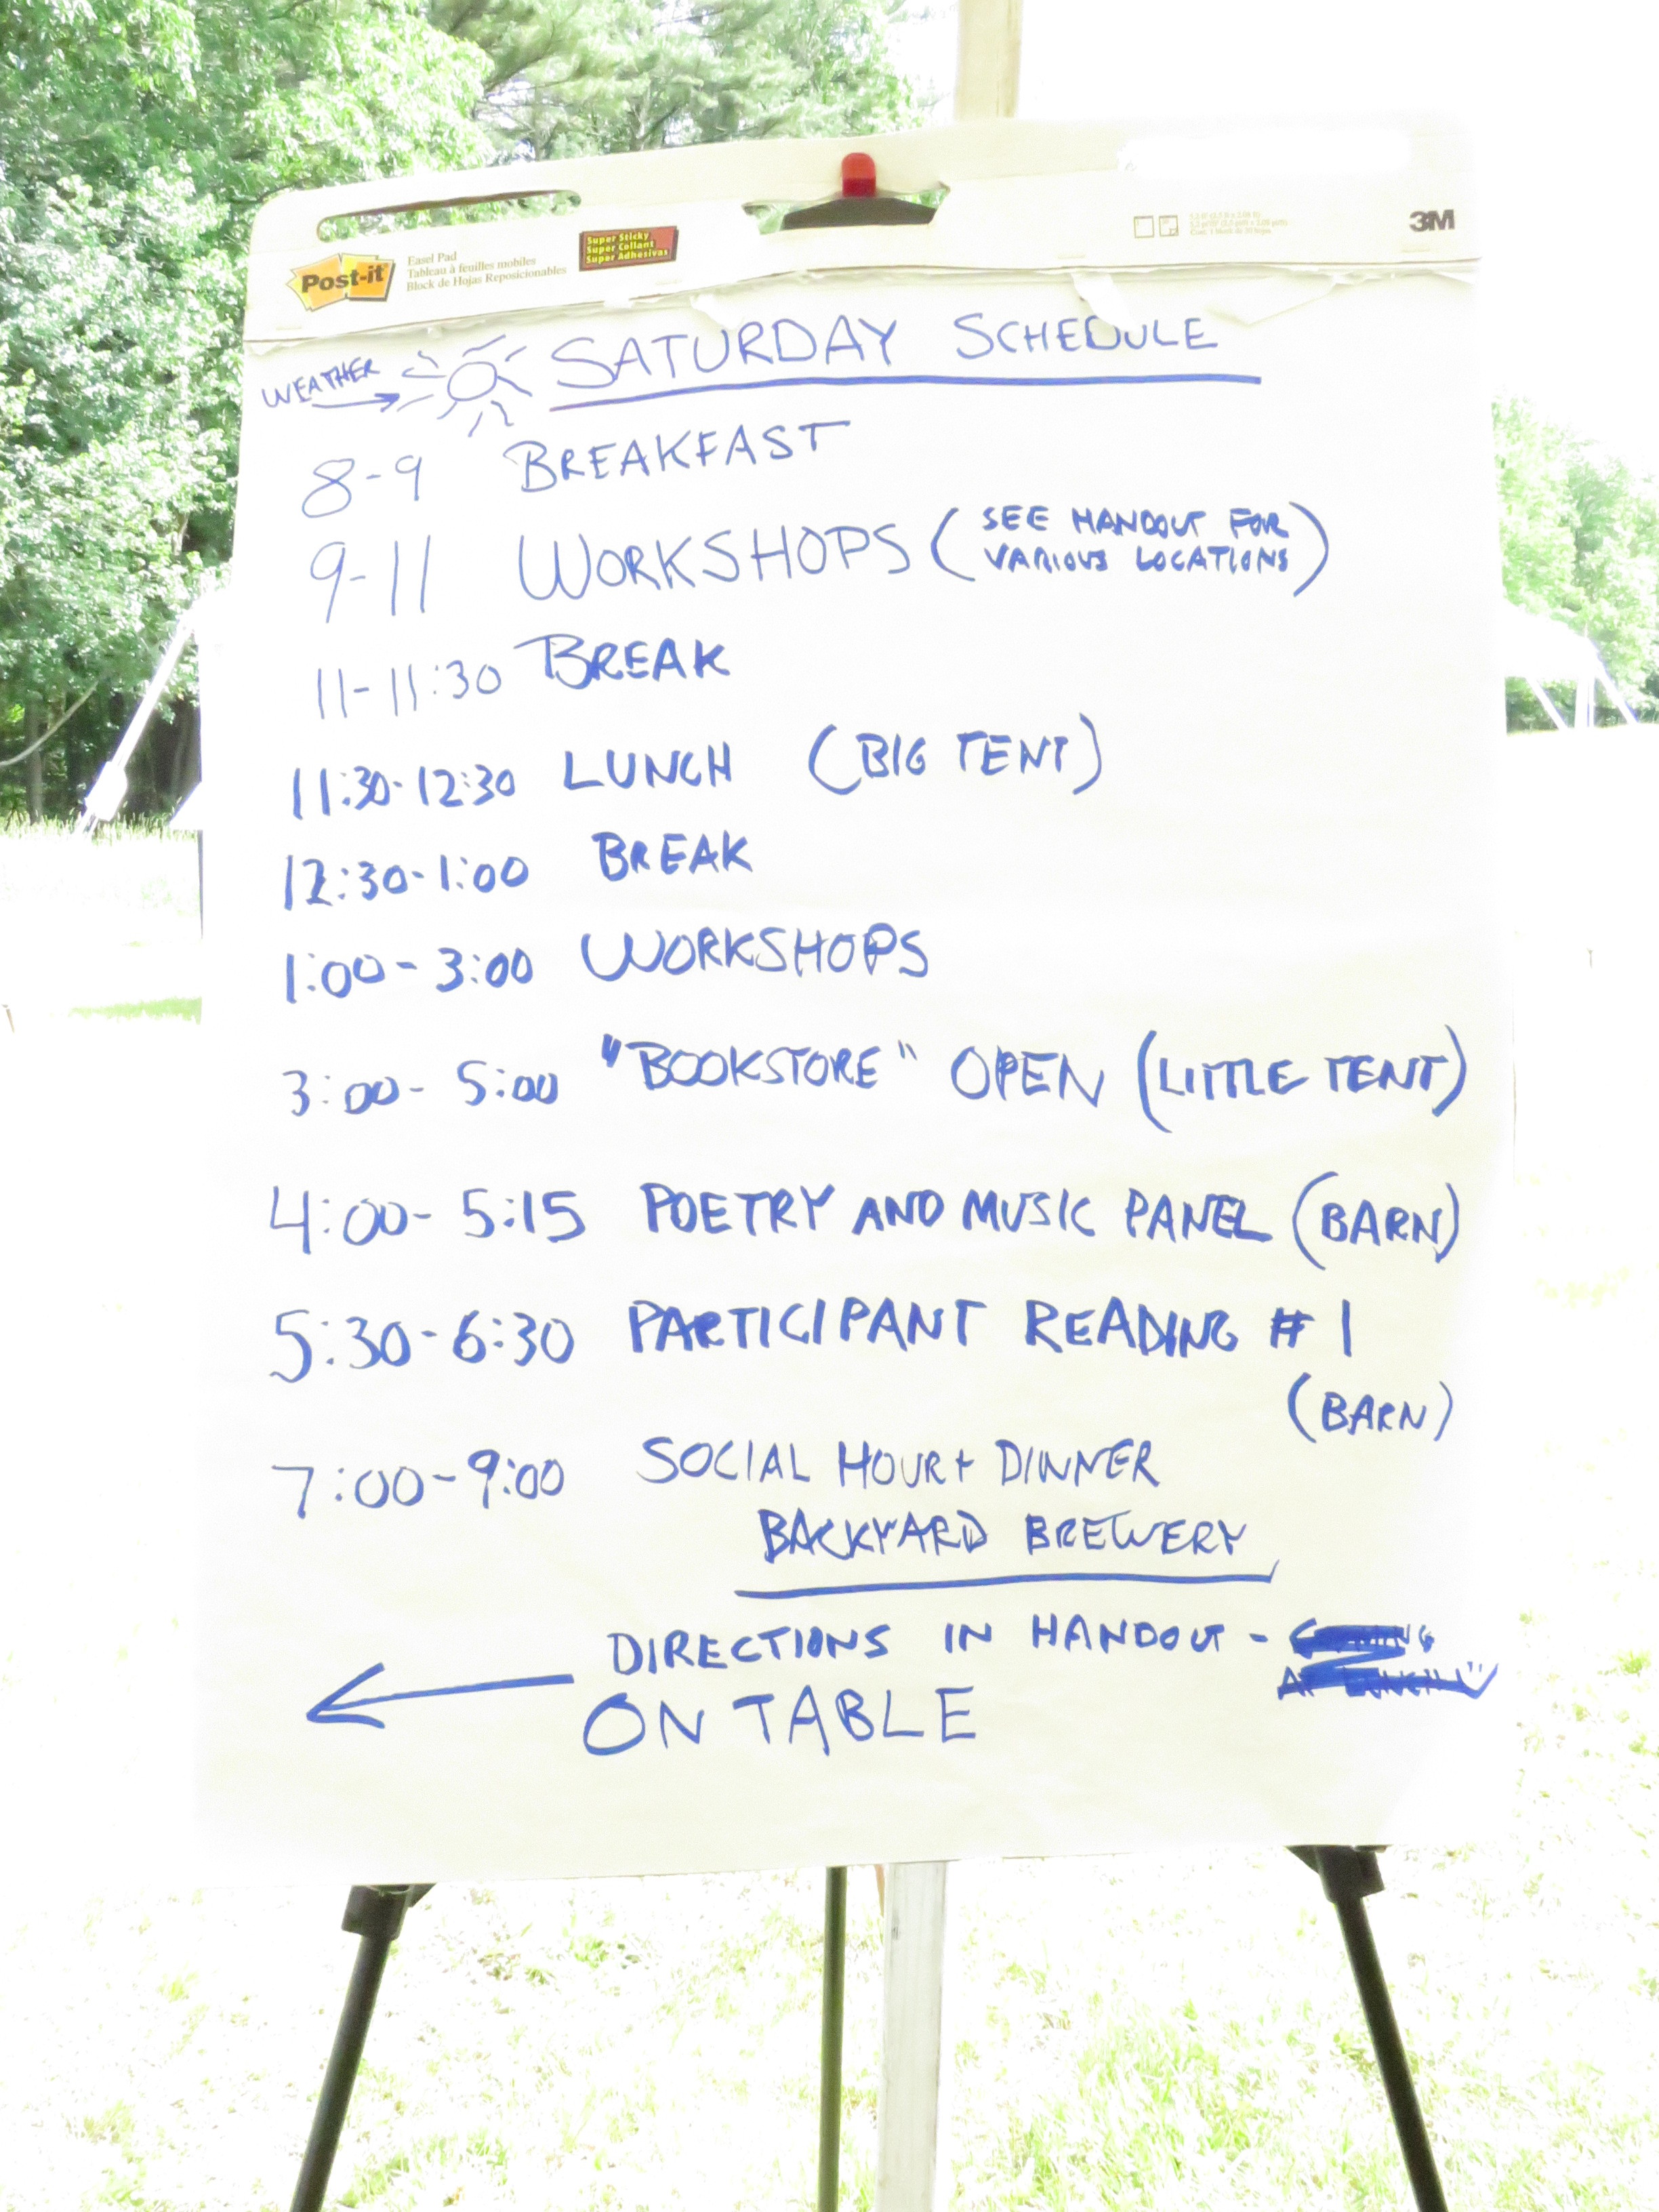 Post-it
Easel Pad
Tableau à feuilles mobiles
Block de Hojas Reposicionables
Super Sticky
Super Collant
Super Adhesivas
3M
WEATHER
SATURDAY SCHEDULE
8-9 BREAKFAST
9-11 WORKSHOPS (SEE HANDOUT FOR
VARIOUS LOCATIONS)
11-11:30 BREAK
11:30-12:30 LUNCH (BIG TENT)
12:30-1:00 BREAK
1:00-3:00 WORKSHOPS
3:00-5:00 "BOOKSTORE" OPEN (LITTLE TENT)
4:00-5:15 POETRY AND MUSIC PANEL (BARN)
5:30-6:30 PARTICIPANT READING #1
(BARN)
7:00-9:00 SOCIAL HOUR + DINNER
BACKYARD BREWERY
DIRECTIONS IN HANDOUT -
ON TABLE